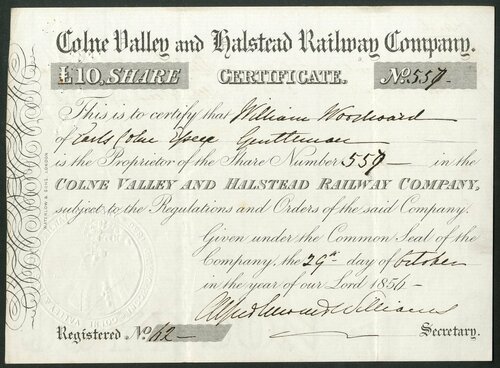 Colne Valley and Halstead Railway Company.
£10, SHARE CERTIFICATE. No. 557
This is to certify that William Woodward
of Earls Colne Essex Gentleman
is the Proprietor of the Share Number 557 in the
COLNE VALLEY AND HALSTEAD RAILWAY COMPANY,
subject to the Regulations and Orders of the said Company.
Given under the Common Seal of the
Company, the 29th day of October
in the year of our Lord 1856
Williams
Registered No. 62 Secretary.
WATERLOW & SONS, LONDON